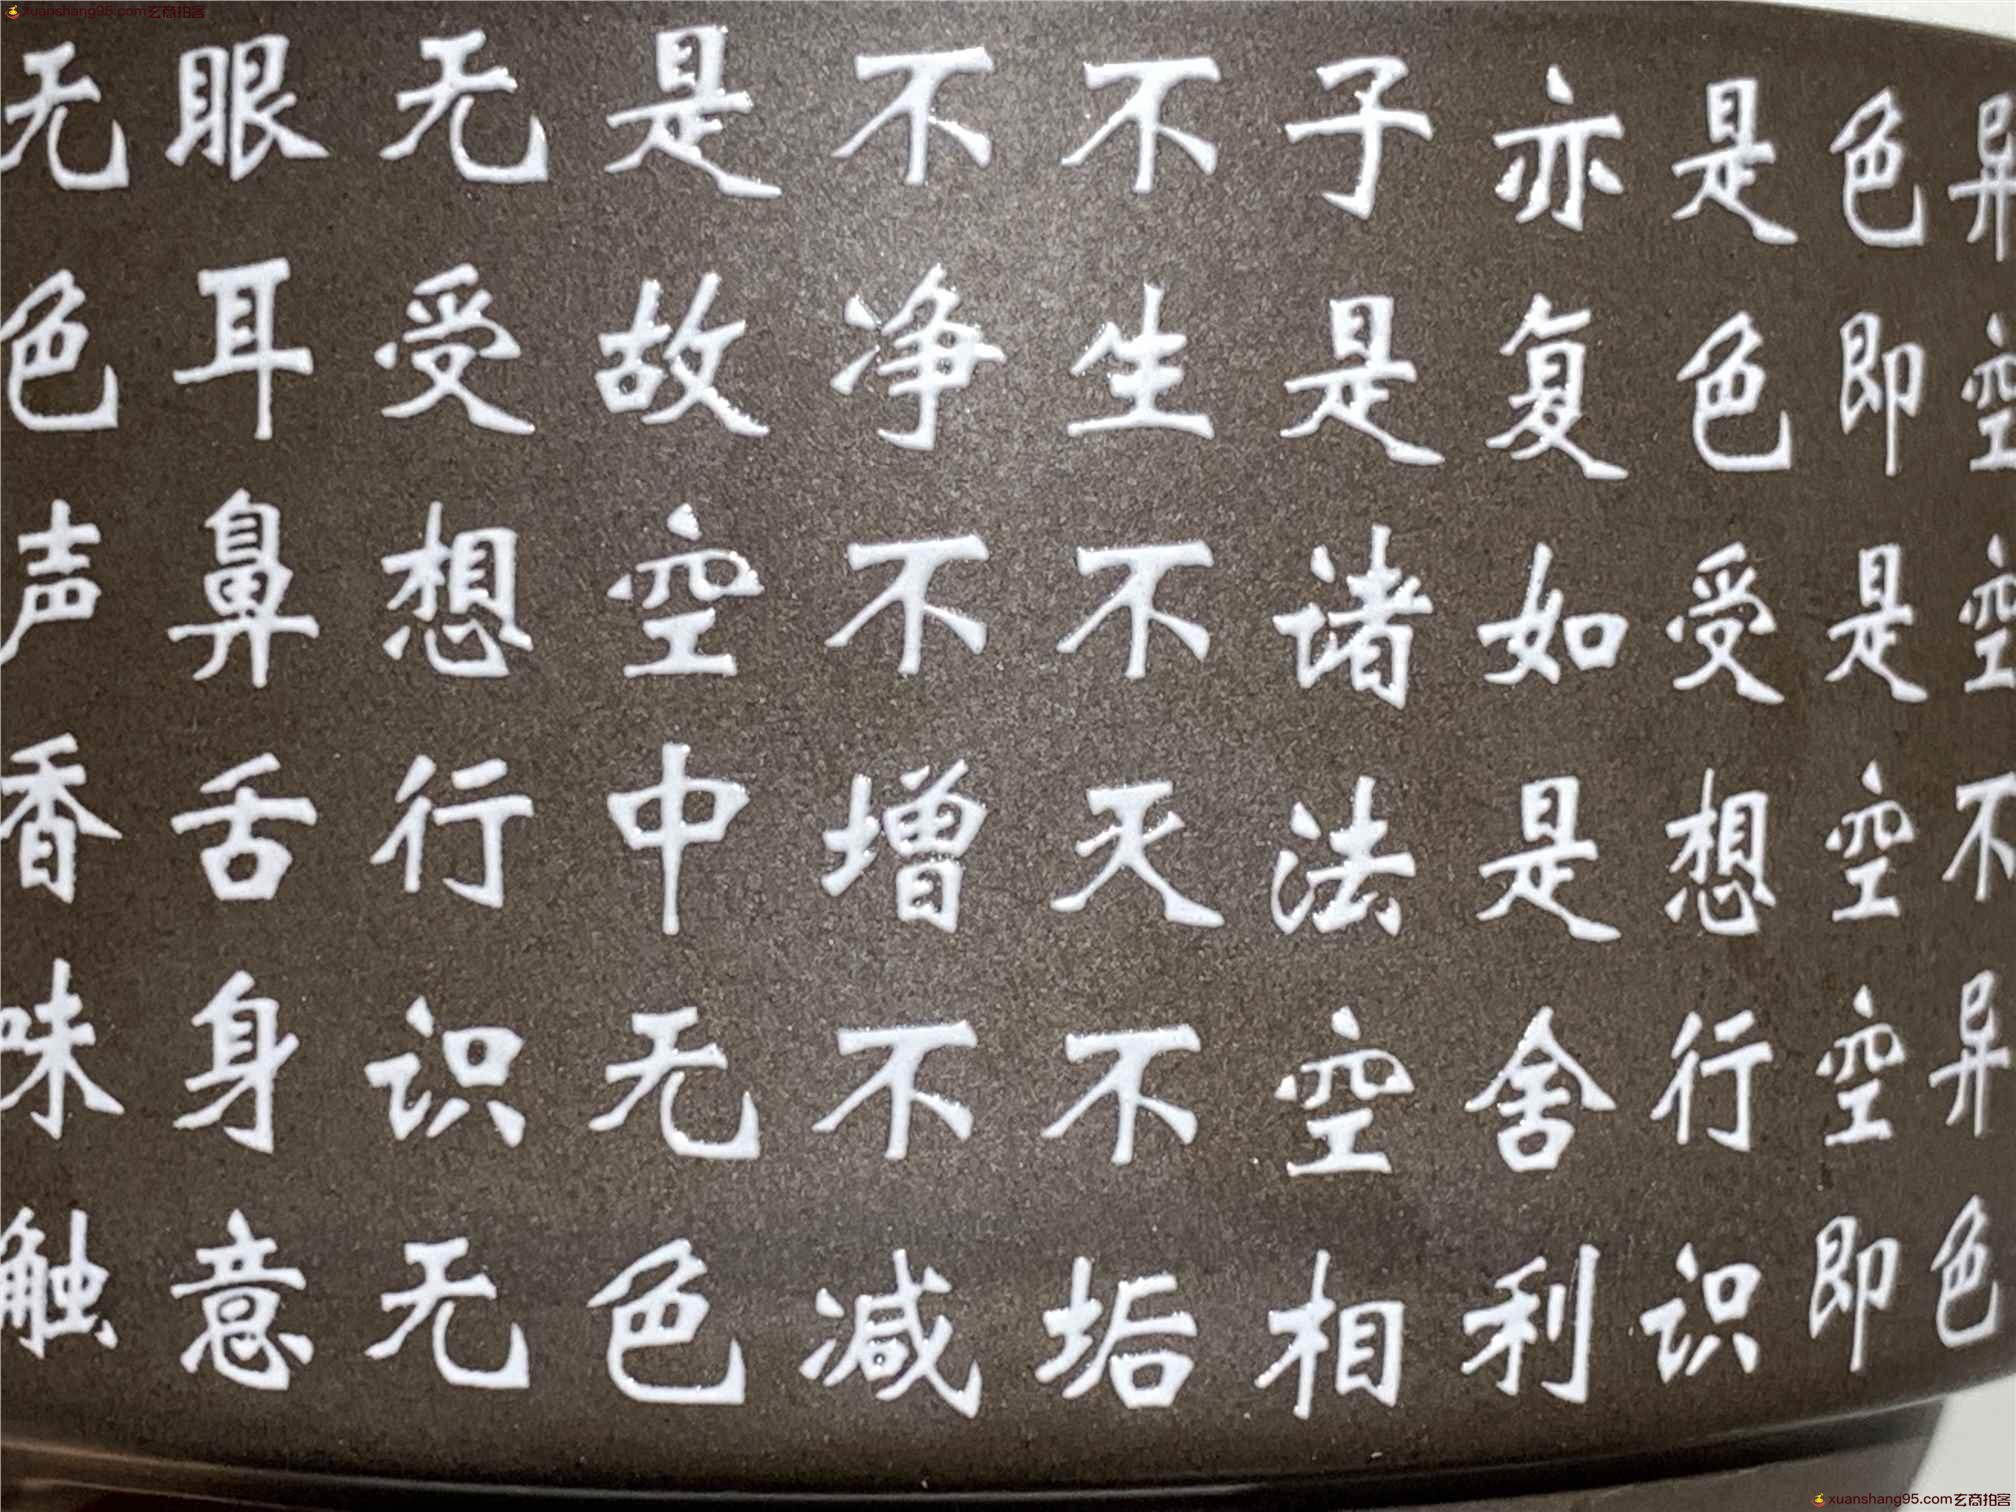 xuanshang95.com玄商拍客
异空空不异色
色即是空空即
是色受想行识
亦复如是舍利
子是诸法空相
不生不灭不垢
不净不增不减
是故空中无色
无受想行识无
眼耳鼻舌身意
无色声香味触
xuanshang95.com玄商拍客